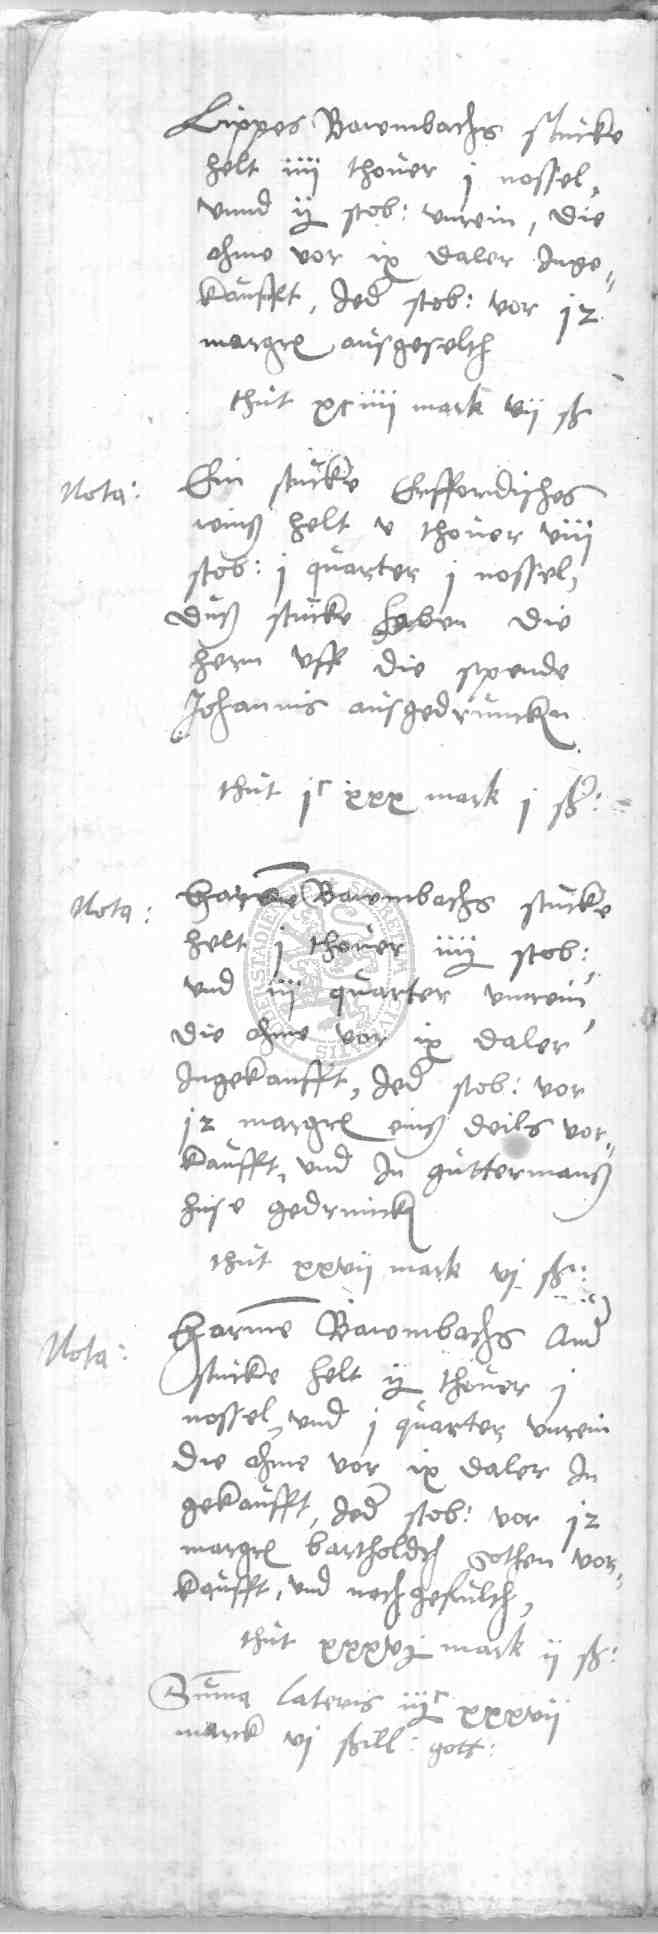 Lippes Bawmbachs stucke
helt iiij thover j nossel,
vnnd ij stob: vnrein, die
ohme vor ix daler Inge-
kaufft, Jed stob: vor jz
margr ausgeselth
thut xciiij mark vij ß
Nota: Ein stucke Erffordisches
weinß helt v thover viij
stob: j quarter j nossel,
duß stucke haben die
hern vff die spende
Johannis ausgedruncken
thut jc xxx mark j ß:
Nota: Harme Bawmbachs stucke
helt j thover iiij stob:
vnd iij quarter vnrein,
die ohme vor ix daler
Ingekaufft, Jed stob: vor
jz margr einß deils vor-
kaufft, vnd In guttermanß
huse gedrunck
thut xxvij mark vj ß:
Nota: Harme Bawmbachs And
stucke helt ij thover j
nossel, vnd j quarter, vnrein
die ohme vor ix daler In
gekaufft, Jed stob: vor jz
margr bartholdh Gothen vor-
kaufft, vnd nachgefulth,
thut xxxvj mark ij ß:
Suma lateris iijc xxxvij
marck vj ßill: gott: